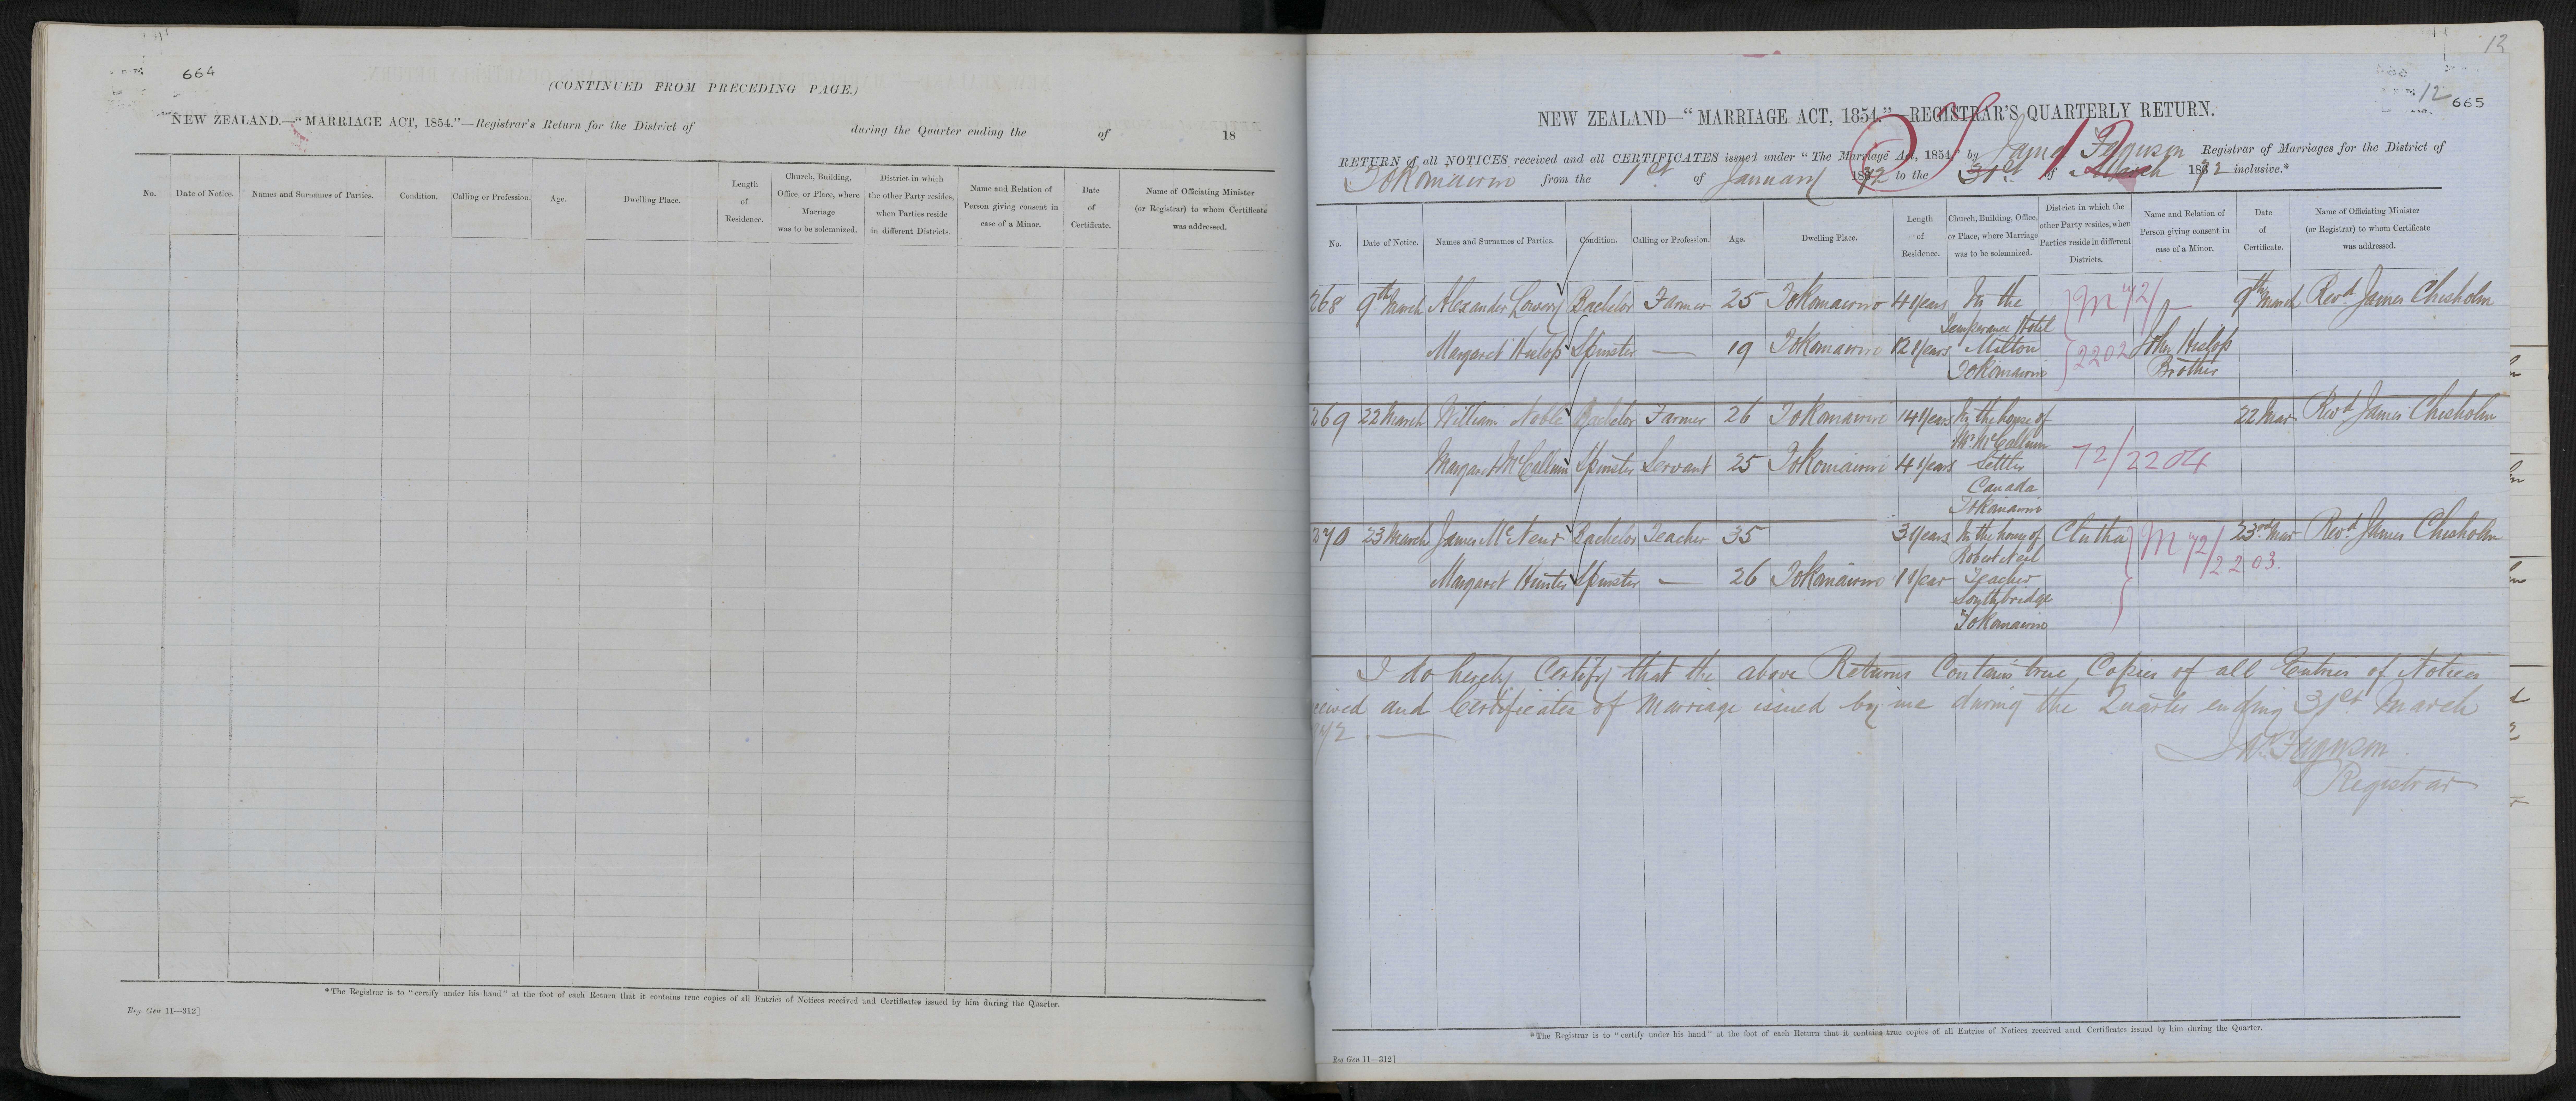 664
(CONTINUED FROM PRECEDING PAGE.)
NEW ZEALAND.—"MARRIAGE ACT, 1854."—Registrar's Return for the District of during the Quarter ending the of 18
No. Date of Notice. Names and Surnames of Parties. Condition. Calling or Profession. Age. Dwelling Place. Length of Residence. Church, Building, Office, or Place, where Marriage was to be solemnized. District in which the other Party resides, when Parties reside in different Districts. Name and Relation of Person giving consent in case of a Minor. Date of Certificate. Name of Officiating Minister (or Registrar) to whom Certificate was addressed.
*The Registrar is to "certify under his hand" at the foot of each Return that it contains true copies of all Entries of Notices received and Certificates issued by him during the Quarter.
Reg Gen 11—312]
12
12 665
NEW ZEALAND—"MARRIAGE ACT, 1854."—REGISTRAR'S QUARTERLY RETURN.
RETURN of all NOTICES received and all CERTIFICATES issued under "The Marriage Act, 1854," by James Ferguson Registrar of Marriages for the District of
Tokomairiro from the 1st of January 1872 to the 31st of March 1872 inclusive.*
No. Date of Notice. Names and Surnames of Parties. Condition. Calling or Profession. Age. Dwelling Place. Length of Residence. Church, Building, Office, or Place, where Marriage was to be solemnized. District in which the other Party resides, when Parties reside in different Districts. Name and Relation of Person giving consent in case of a Minor. Date of Certificate. Name of Officiating Minister (or Registrar) to whom Certificate was addressed.
268 9th March Alexander Lowery Bachelor Farmer 25 Tokomairiro 4 Years In the M 72/ 9th March Revd James Chisholm
Temperance Hotel
Margaret Hislop Spinster — 19 Tokomairiro 12 Years Milton 2202 John Hislop
Tokomairiro Brother
269 22 March William Noble Bachelor Farmer 26 Tokomairiro 14 Years In the house of 22 Mar Revd James Chisholm
Mr McCallum
Margaret McCallum Spinster Servant 25 Tokomairiro 4 Years Settler 72/2204
Canada
Tokomairiro
270 23 March James McNeur Bachelor Teacher 35 3 Years In the house of Clutha M 72/2203. 23rd Mar Revd James Chisholm
Robert Neil
Margaret Hunter Spinster — 26 Tokomairiro 1 Year Teacher
Southbridge
Tokomairiro
I do hereby Certify that the above Returns Contains true Copies of all Entries of Notices
and Certificates of Marriage issued by me during the Quarter ending 31st March
Ferguson
Registrar
*The Registrar is to "certify under his hand" at the foot of each Return that it contains true copies of all Entries of Notices received and Certificates issued by him during the Quarter.
Reg Gen 11—312]